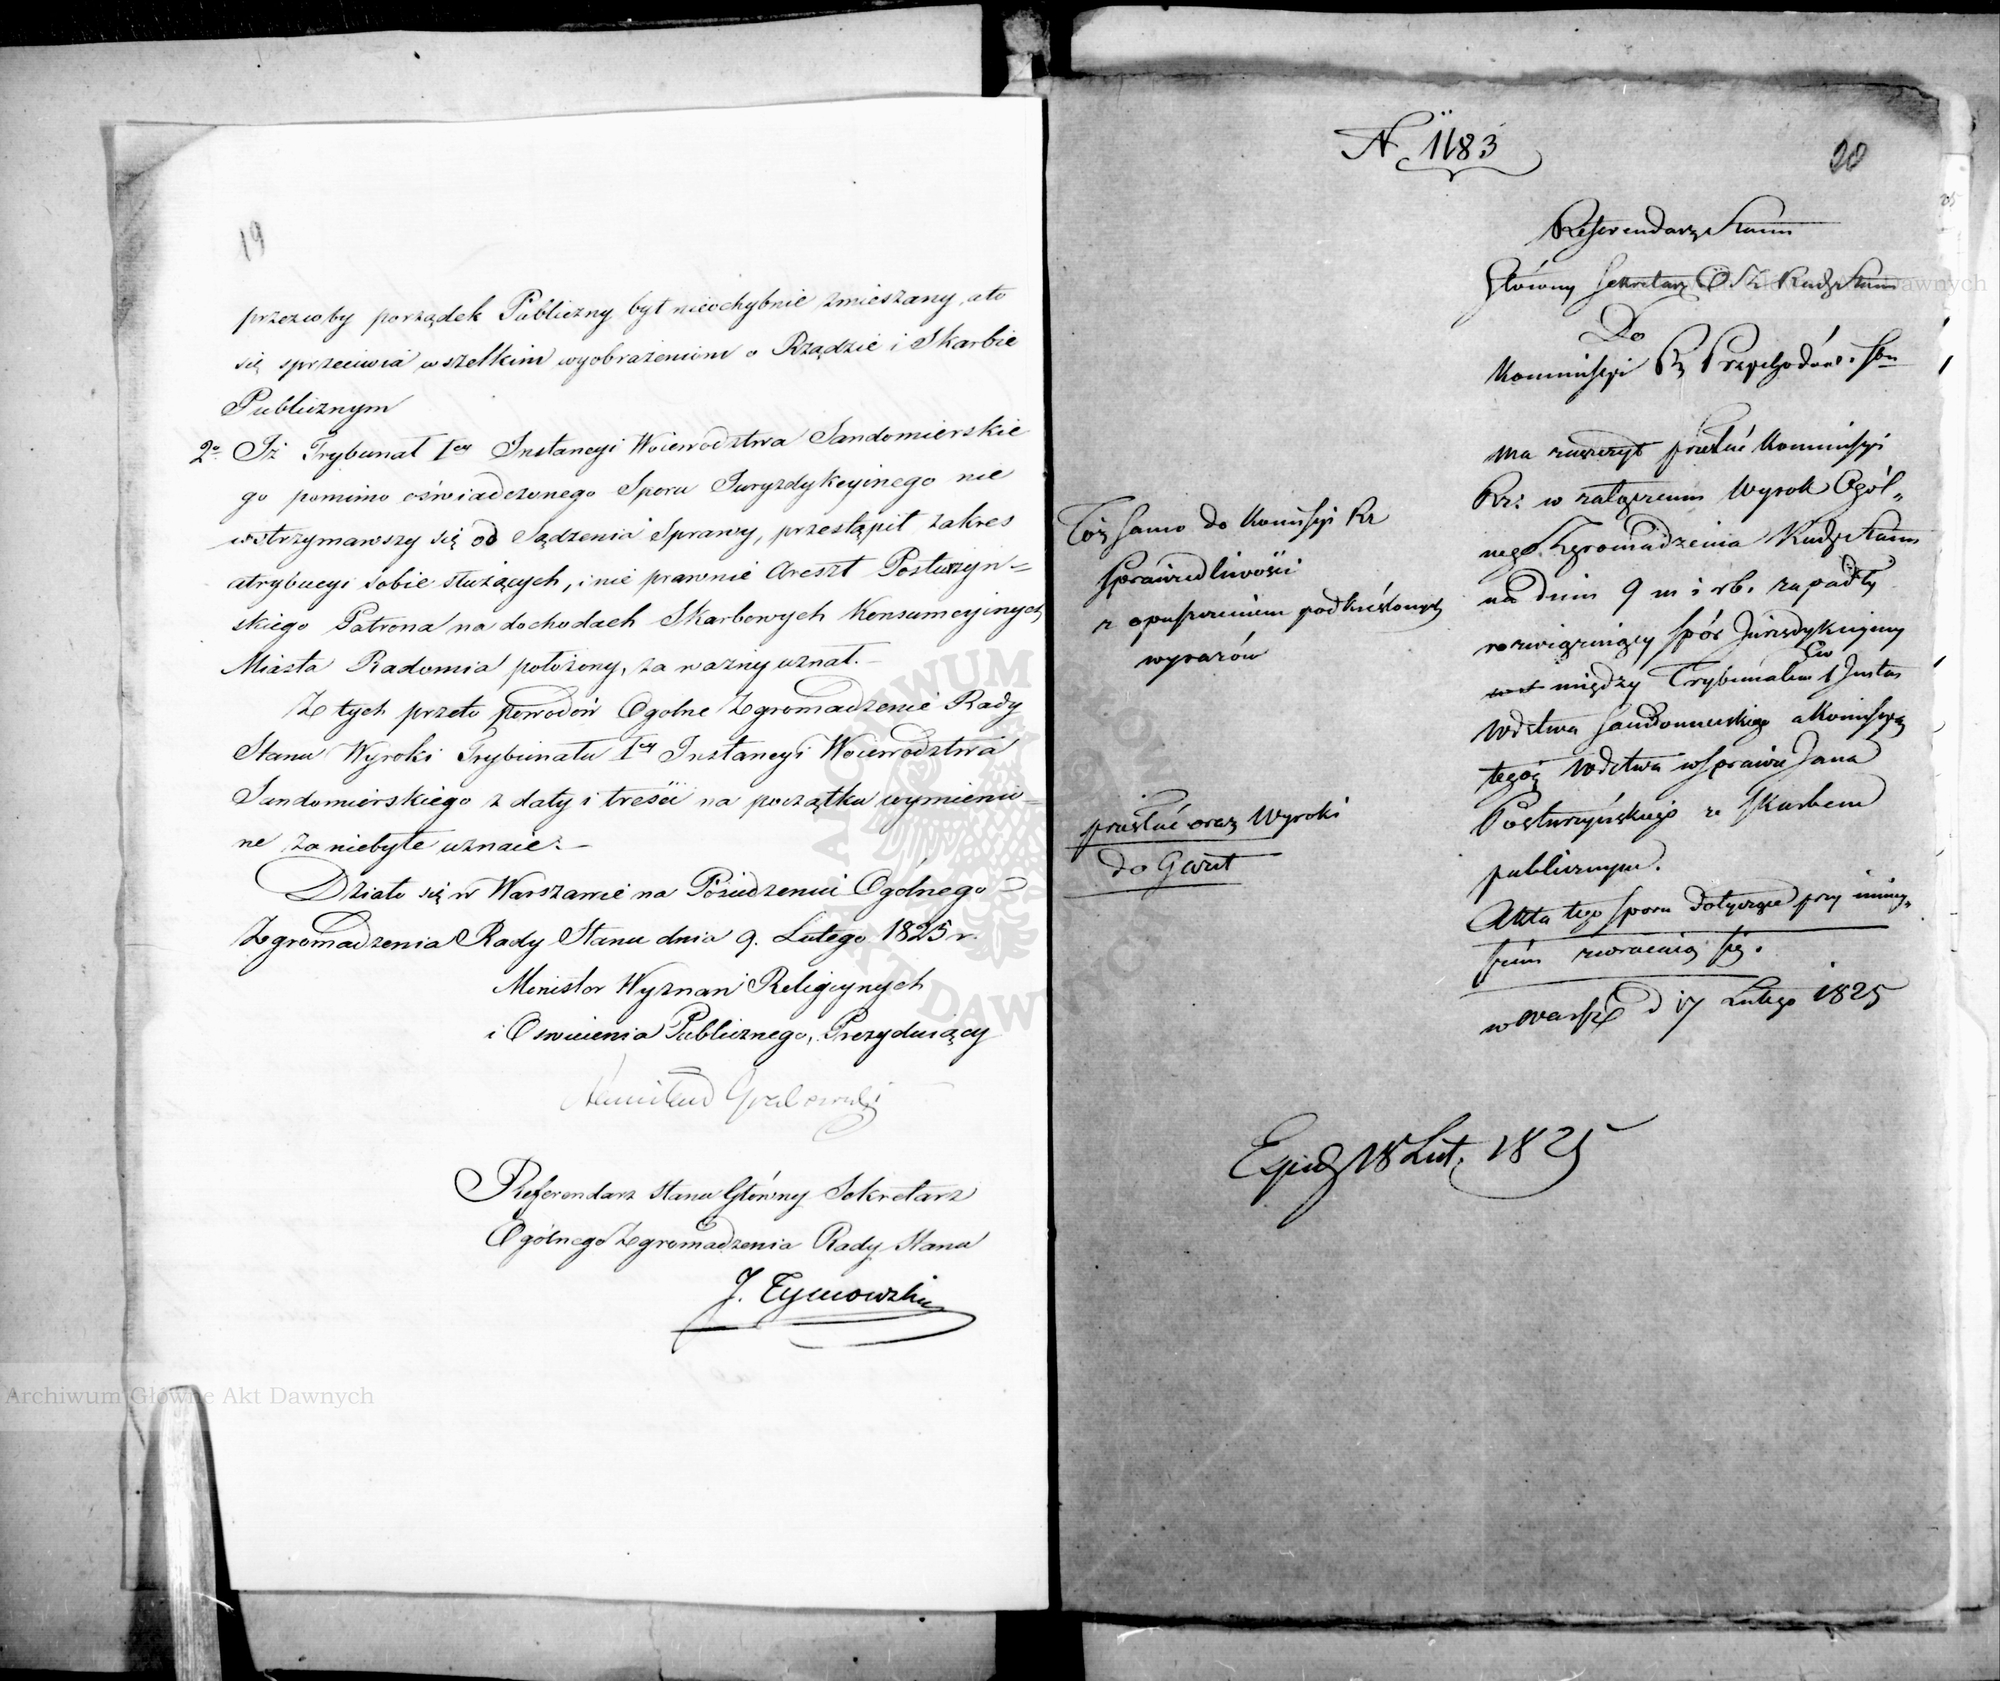 19
przezco by porządek Publiczny był nieochybnie zmieszany, a to
się sprzeciwia wszelkim wyobrażeniom o Rządzie i Skarbie
Publicznym
2o Iż Trybunał Iey Instancyi Woiewodztwa Sandomierskie
go pomimo oświadczonego Sporu Juryzdykcyinego nie
wstrzymawszy się od Sądzenia Sprawy, przestąpił zakres
atrybucyi sobie służących, i nie prawnie Areszt Posturzyń=
skiego Patrona na dochodach Skarbowych Konsumcyinych
Miasta Radomia położony, za ważny uznał.
Z tych przeto powodów Ogólne Zgromadzenie Rady
Stanu Wyroki Trybunału Iey Instancyi Woiewodztwa
Sandomierskiego z daty i treści na początku wymienio=
ne za niebyłe uznaie.
Działo się w Warszawie na Posiedzeniu Ogólnego
Zgromadzenia Rady Stanu dnia 9. Lutego 1825 r.
Minister Wyznań Religiynych
i Oświecenia Publicznego, Prezyduiący
Stanisław Grabowski
Referendarz Stanu Główny Sekretarz
Ogólnego Zgromadzenia Rady Stanu
J. Tymowski
N 1183
20
Referendarz Stanu
Główny Sekretarz O. Z. Rady Stanu
Do
Kommissyi Rz Przychodów i Sku
ma zaszczyt przesłać Kommissyi
Rz: w załączeniu Wyrok Ogól„
nego Zgromadzenia Rady Stanu
na dniu 9 m i rb. zapadły
rozwiązuiący spór Jurisdykcyiny
między Trybunałem 1 Instan
Wdztwa Sandomierskiego a Komissyą
tegoż Wdztwa w Sprawie Jana
Posturzyńskiego ze Skarbem
publicznym.
Akta tego sporu dotyczące przy niniey„
szém zwracaią się.
w Warsz d 17 Lutego 1825
Toż samo do Komissyi Rz
Sprawiedliwości
z opuszczeniem podkréslonych
wyrazów
przesłać oraz Wyroki
do Gazet
Exped 18 Lut. 1825
Archiwum Główne Akt Dawnych